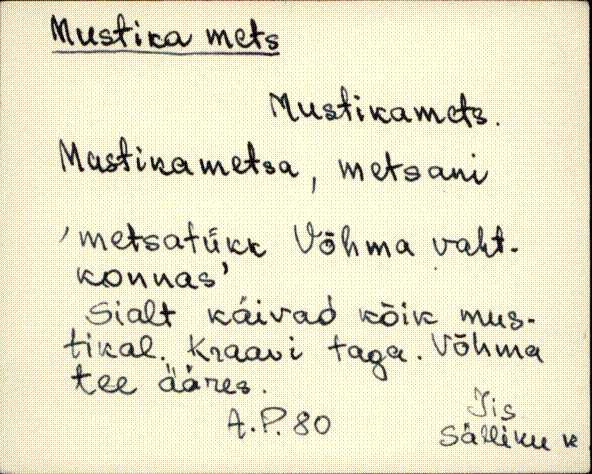 Mustika mets
Mustikamets.
Mustikametsa, metsani
'metsatükk Võhma vaht-
konnas'
Sialt käivad kõik mus-
tikal. Kraavi taga. Võhma
tee ääres.
A.P. 80
Jis
Sälliku k